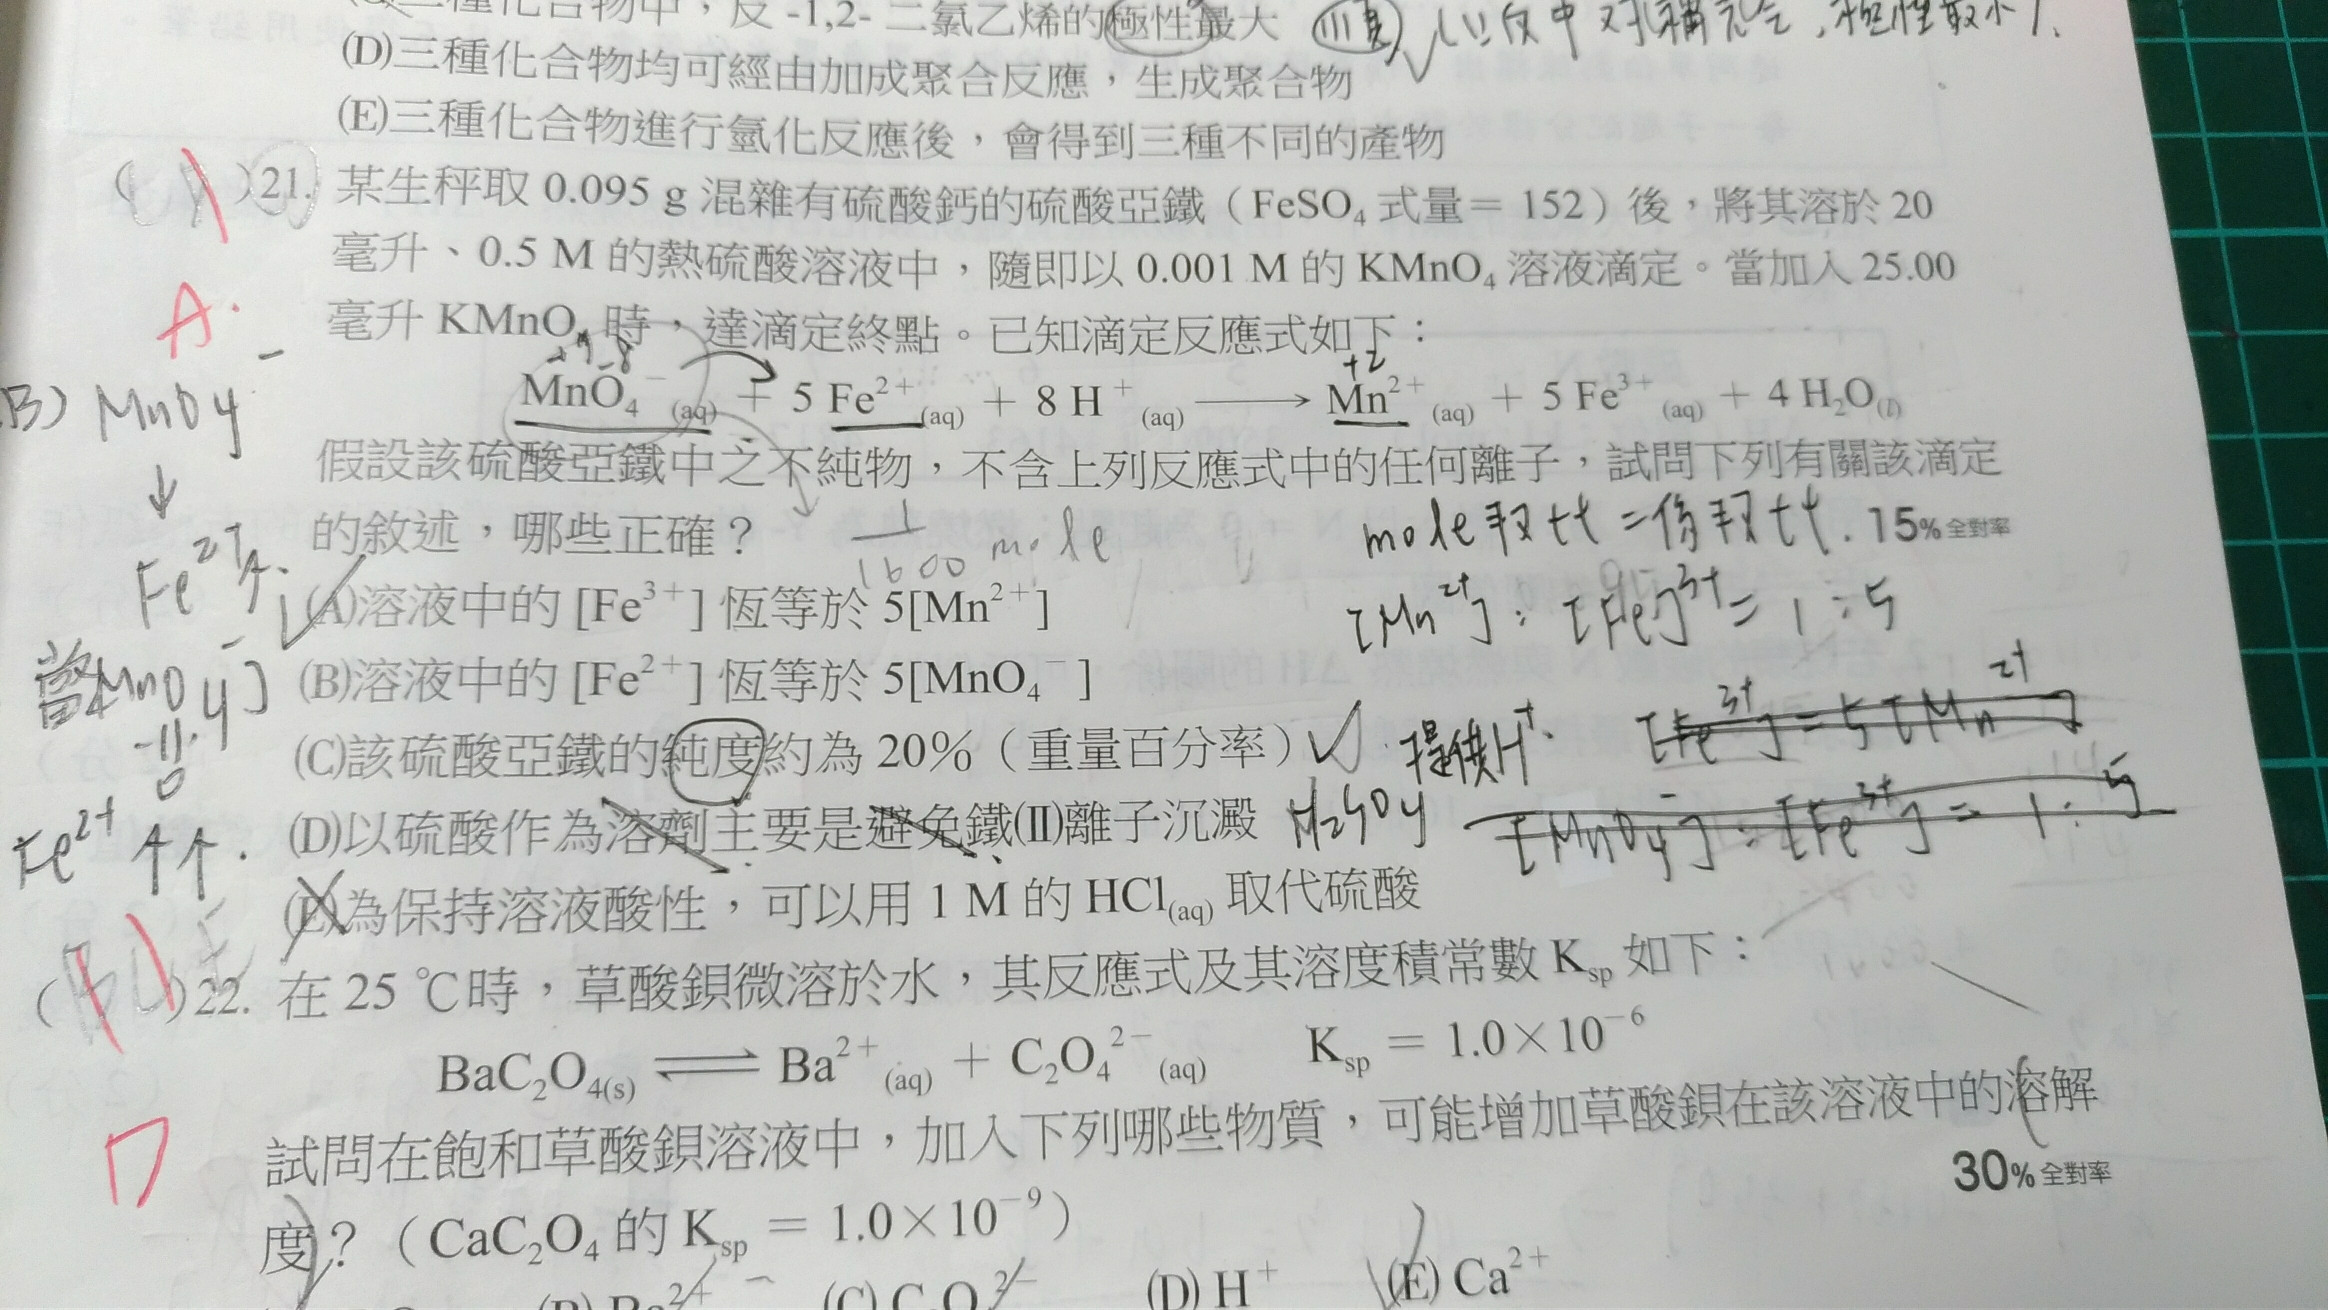 三種化合物中，反 -1,2- 二氯乙烯的極性最大
(D)三種化合物均可經由加成聚合反應，生成聚合物
(E)三種化合物進行氫化反應後，會得到三種不同的產物
( )21. 某生秤取 0.095 g 混雜有硫酸鈣的硫酸亞鐵（FeSO₄ 式量＝ 152）後，將其溶於 20
毫升、0.5 M 的熱硫酸溶液中，隨即以 0.001 M 的 KMnO₄ 溶液滴定。當加入 25.00
A.
毫升 KMnO₄ 時，達滴定終點。已知滴定反應式如下：
+7 -8
+2
B) MnO4⁻
MnO₄⁻(aq) + 5 Fe²⁺(aq) + 8 H⁺(aq) ⟶ Mn²⁺(aq) + 5 Fe³⁺(aq) + 4 H₂O(l)
假設該硫酸亞鐵中之不純物，不含上列反應式中的任何離子，試問下列有關該滴定
↓
的敘述，哪些正確？
mole 數比 = 係數比. 15% 全對率
Fe²⁺↑.
(A)溶液中的 [Fe³⁺] 恆等於 5[Mn²⁺]
[Mn²⁺] : [Fe]³⁺ = 1 : 5
當[MnO4⁻]
(B)溶液中的 [Fe²⁺] 恆等於 5[MnO₄⁻]
[Fe³⁺] = 5[Mn²⁺]
(C)該硫酸亞鐵的純度約為 20%（重量百分率）
提供H⁺.
=0
Fe²⁺↑↑.
(D)以硫酸作為溶劑主要是避免鐵(Ⅱ)離子沉澱
H2SO4
[MnO4⁻] : [Fe³⁺] = 1 : 5
(E)為保持溶液酸性，可以用 1 M 的 HCl(aq) 取代硫酸
( )22. 在 25 ℃時，草酸鋇微溶於水，其反應式及其溶度積常數 Ksp 如下：
BaC₂O₄(s) ⇌ Ba²⁺(aq) + C₂O₄²⁻(aq) Ksp = 1.0×10⁻⁶
D
試問在飽和草酸鋇溶液中，加入下列哪些物質，可能增加草酸鋇在該溶液中的溶解
30% 全對率
度？（CaC₂O₄ 的 Ksp = 1.0×10⁻⁹）
(B) Ba²⁺ (C) C₂O₄²⁻ (D) H⁺ (E) Ca²⁺